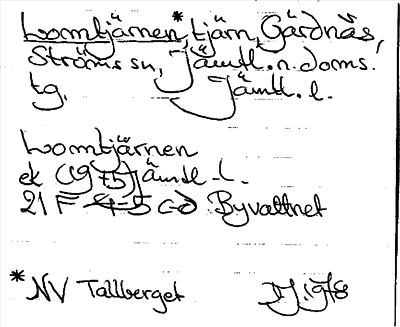 Lomtjärnen*, tjärn, Gärdnäs,
Ströms sn, Jämtl. n. doms.
tg. Jämtl. l.
Lomtjärnen
ek (1975) Jämtl. l.
21 F 4-5 c-d Byvattnet
* NV Tallberget DJ. 1978